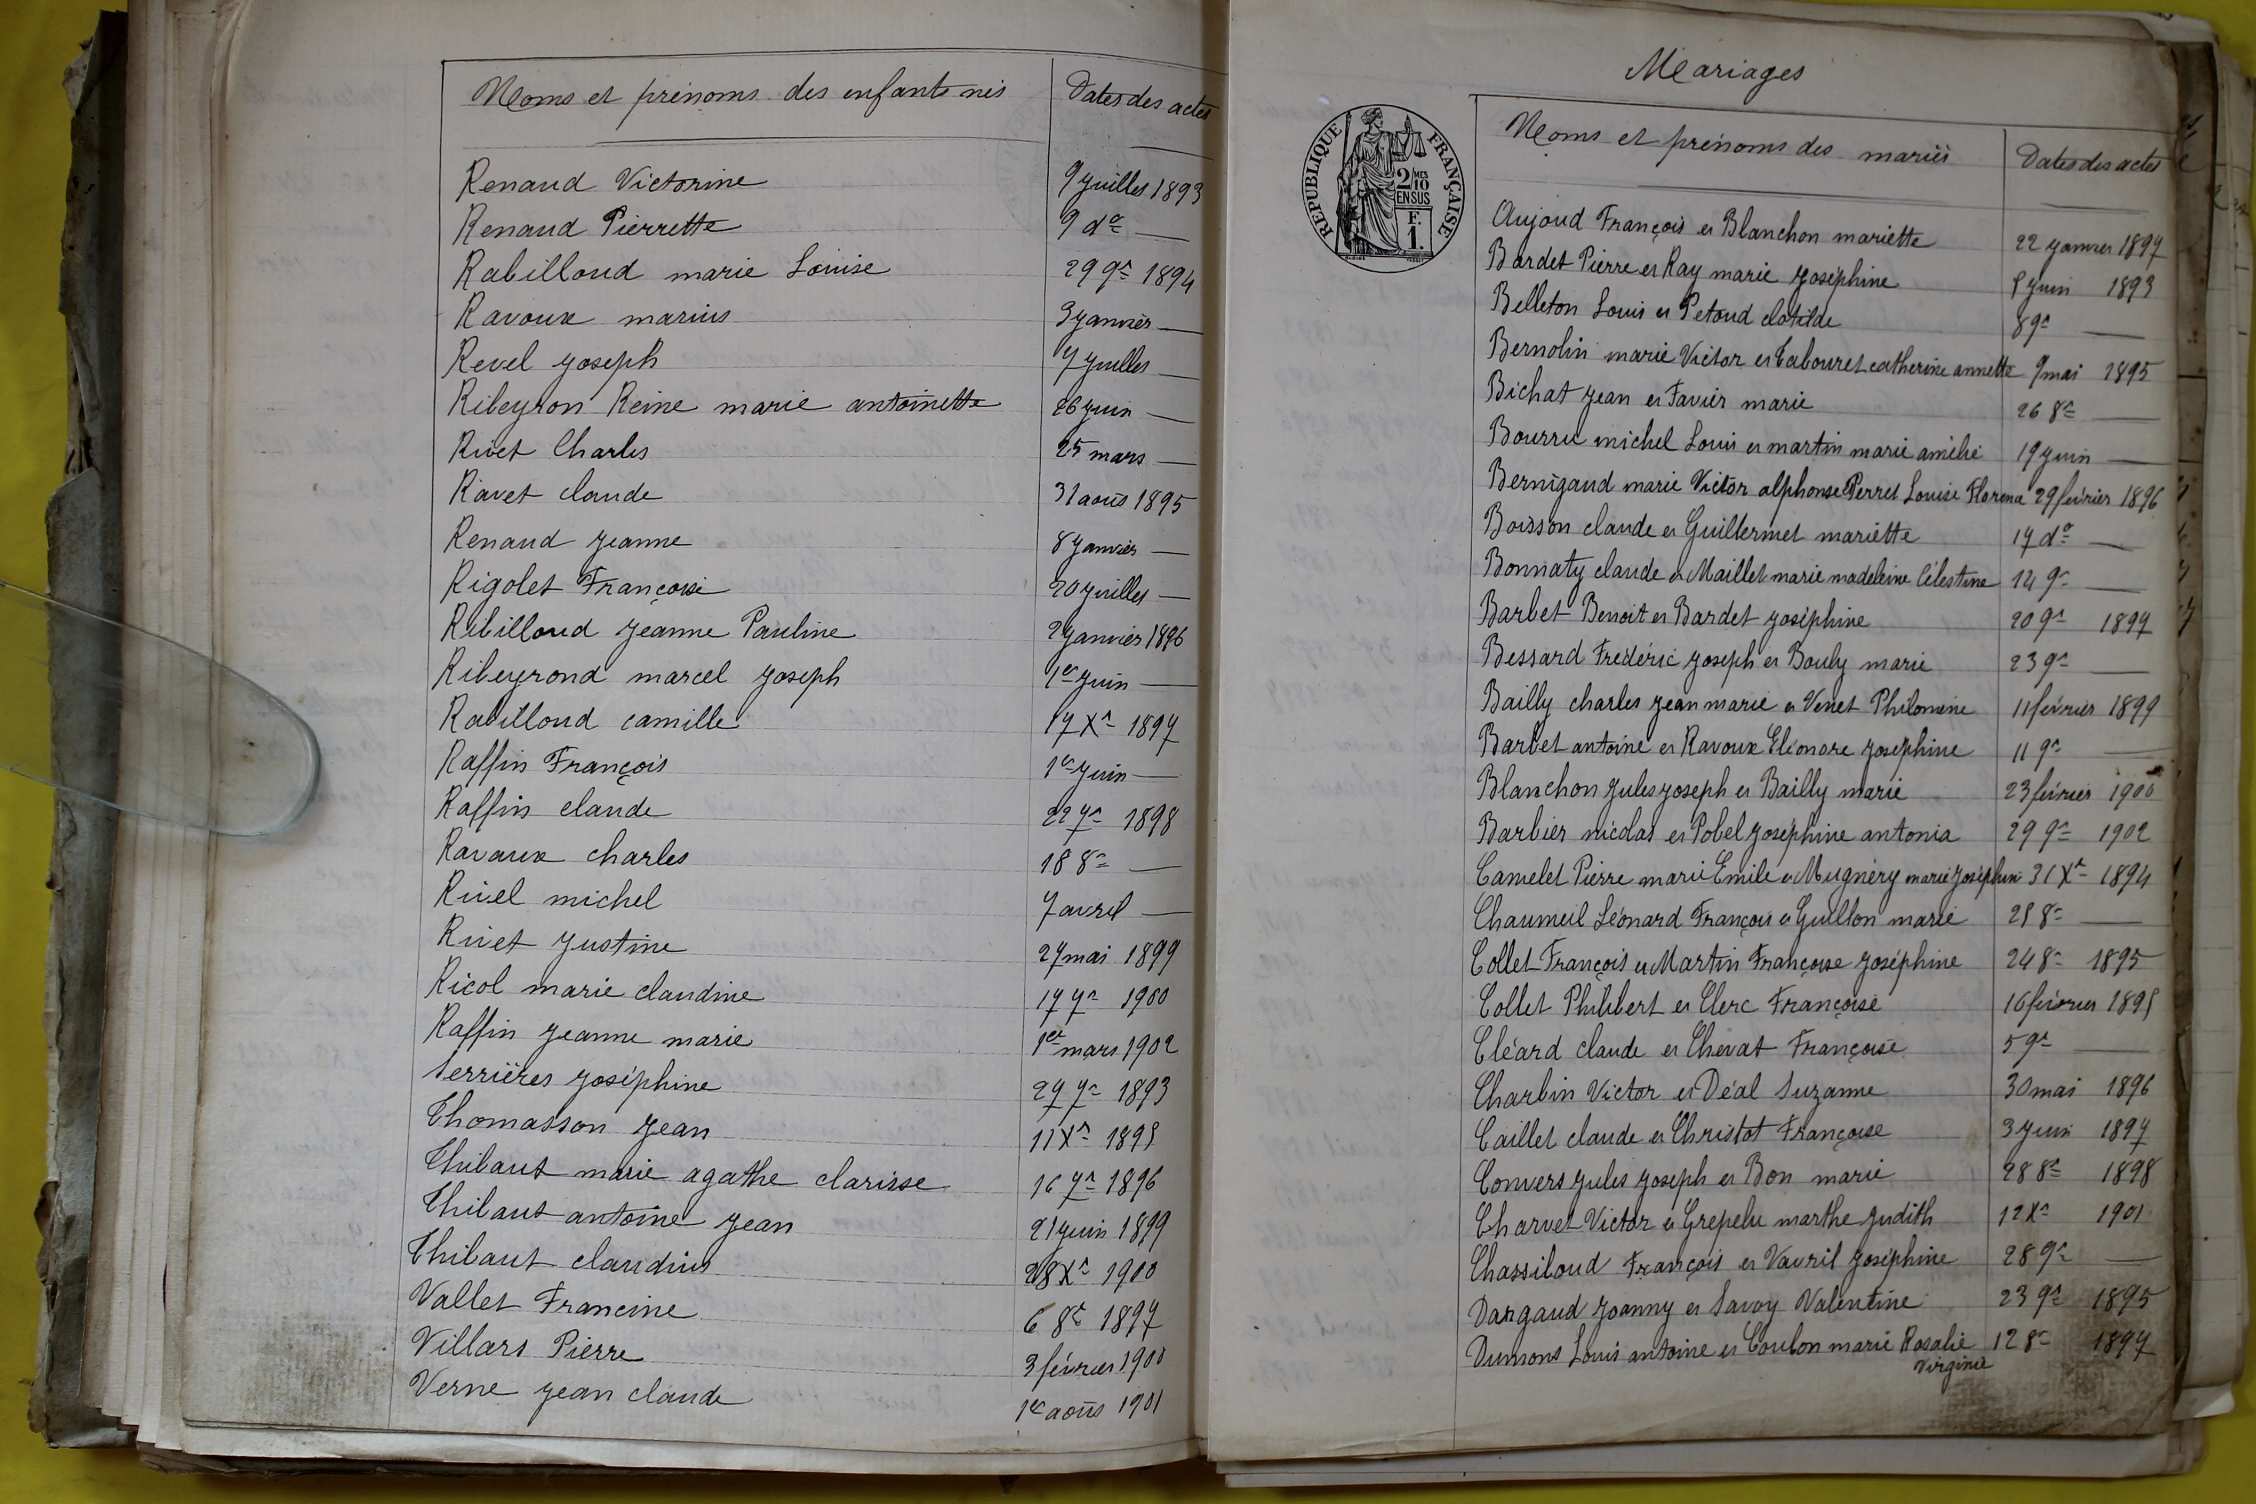 Noms et prénoms des enfants nés Dates des actes
Renaud Victorine 9 juillet 1893
Renaud Pierrette 9 do —
Rabilloud marie Louise 29 9re 1894
Ravoux marius 3 janvier —
Revel joseph 7 juillet —
Ribeyron Reine marie antoinette 26 juin —
Rivet Charles 25 mars —
Ravet claude 31 août 1895
Renaud jeanne 8 janvier —
Rigolet Françoise 20 juillet —
Ribilloud jeanne Pauline 2 janvier 1896
Ribeyrond marcel joseph 1er juin —
Rabilloud camille 17 Xre 1897
Raffin François 1er juin —
Raffin claude 22 7re 1898
Ravaux charles 18 8re —
Rivel michel 7 avril —
Rivet justine 27 mai 1899
Ricol marie claudine 17 7re 1900
Raffin jeanne marie 1er mars 1902
Serrières joséphine 27 7re 1893
Thomasson jean 11 Xre 1895
Thibaut marie agathe clarisse 16 7re 1896
Thibaut antoine jean 21 juin 1899
Thibaut claudius 28 Xre 1900
Vallet Francine 6 8re 1897
Villars Pierre 3 février 1900
Verne jean claude 1er août 1901
Mariages
REPUBLIQUE FRANÇAISE
2/10MES
EN SUS
F.
1.
Noms et prénoms des mariés Dates des actes
Aujoud François et Blanchon mariette 22 janvier 1897
Bardet Pierre et Ray marie joséphine 8 juin 1893
Belleton Louis et Petoud clotilde 8 9re —
Bernolin marie Victor et Tabouret catherine annette 9 mai 1895
Bichat jean et Favier marie 26 8re —
Bourru michel Louis et martin marie amélie 19 juin —
Bernigaud marie Victor alphonse Perret Louise Florence 29 février 1896
Boisson claude et Guillermet mariette 17 do —
Bonnaty claude et Maillet marie madeleine Célestine 14 9re —
Barbet Benoit et Bardet joséphine 20 9re 1897
Bessard Fredéric joseph et Bouly marie 23 9re —
Bailly charles jean marie et Venet Philomène 11 février 1899
Barbet antoine et Ravoux Eléonore joséphine 11 9re —
Blanchon jules joseph et Bailly marie 23 février 1900
Barbier nicolas et Pobel joséphine antonia 29 9re 1902
Camelet Pierre marie Emile et Mugnery marie joséphine 31 Xre 1894
Chaumeil Léonard François et Guillon marie 28 8re —
Collet François et Martin Françoise joséphine 24 8re 1895
Collet Philibert et Clerc Françoise 16 février 1895
Cléard claude et Chevat Françoise 5 9re —
Charbin Victor et Déal Suzanne 30 mai 1896
Caillet claude et Christot Françoise 3 juin 1897
Convers jules joseph et Bon marie 28 8re 1898
Charvet Victor et Grepelu marthe judith 12 Xre 1901
Chassiloud François et Vavril joséphine 28 9re —
Dargaud joanny et Savoy Valentine 23 9re 1895
Dumons Louis antoine et Coulon marie Rosalie 12 8re 1897
Virginie